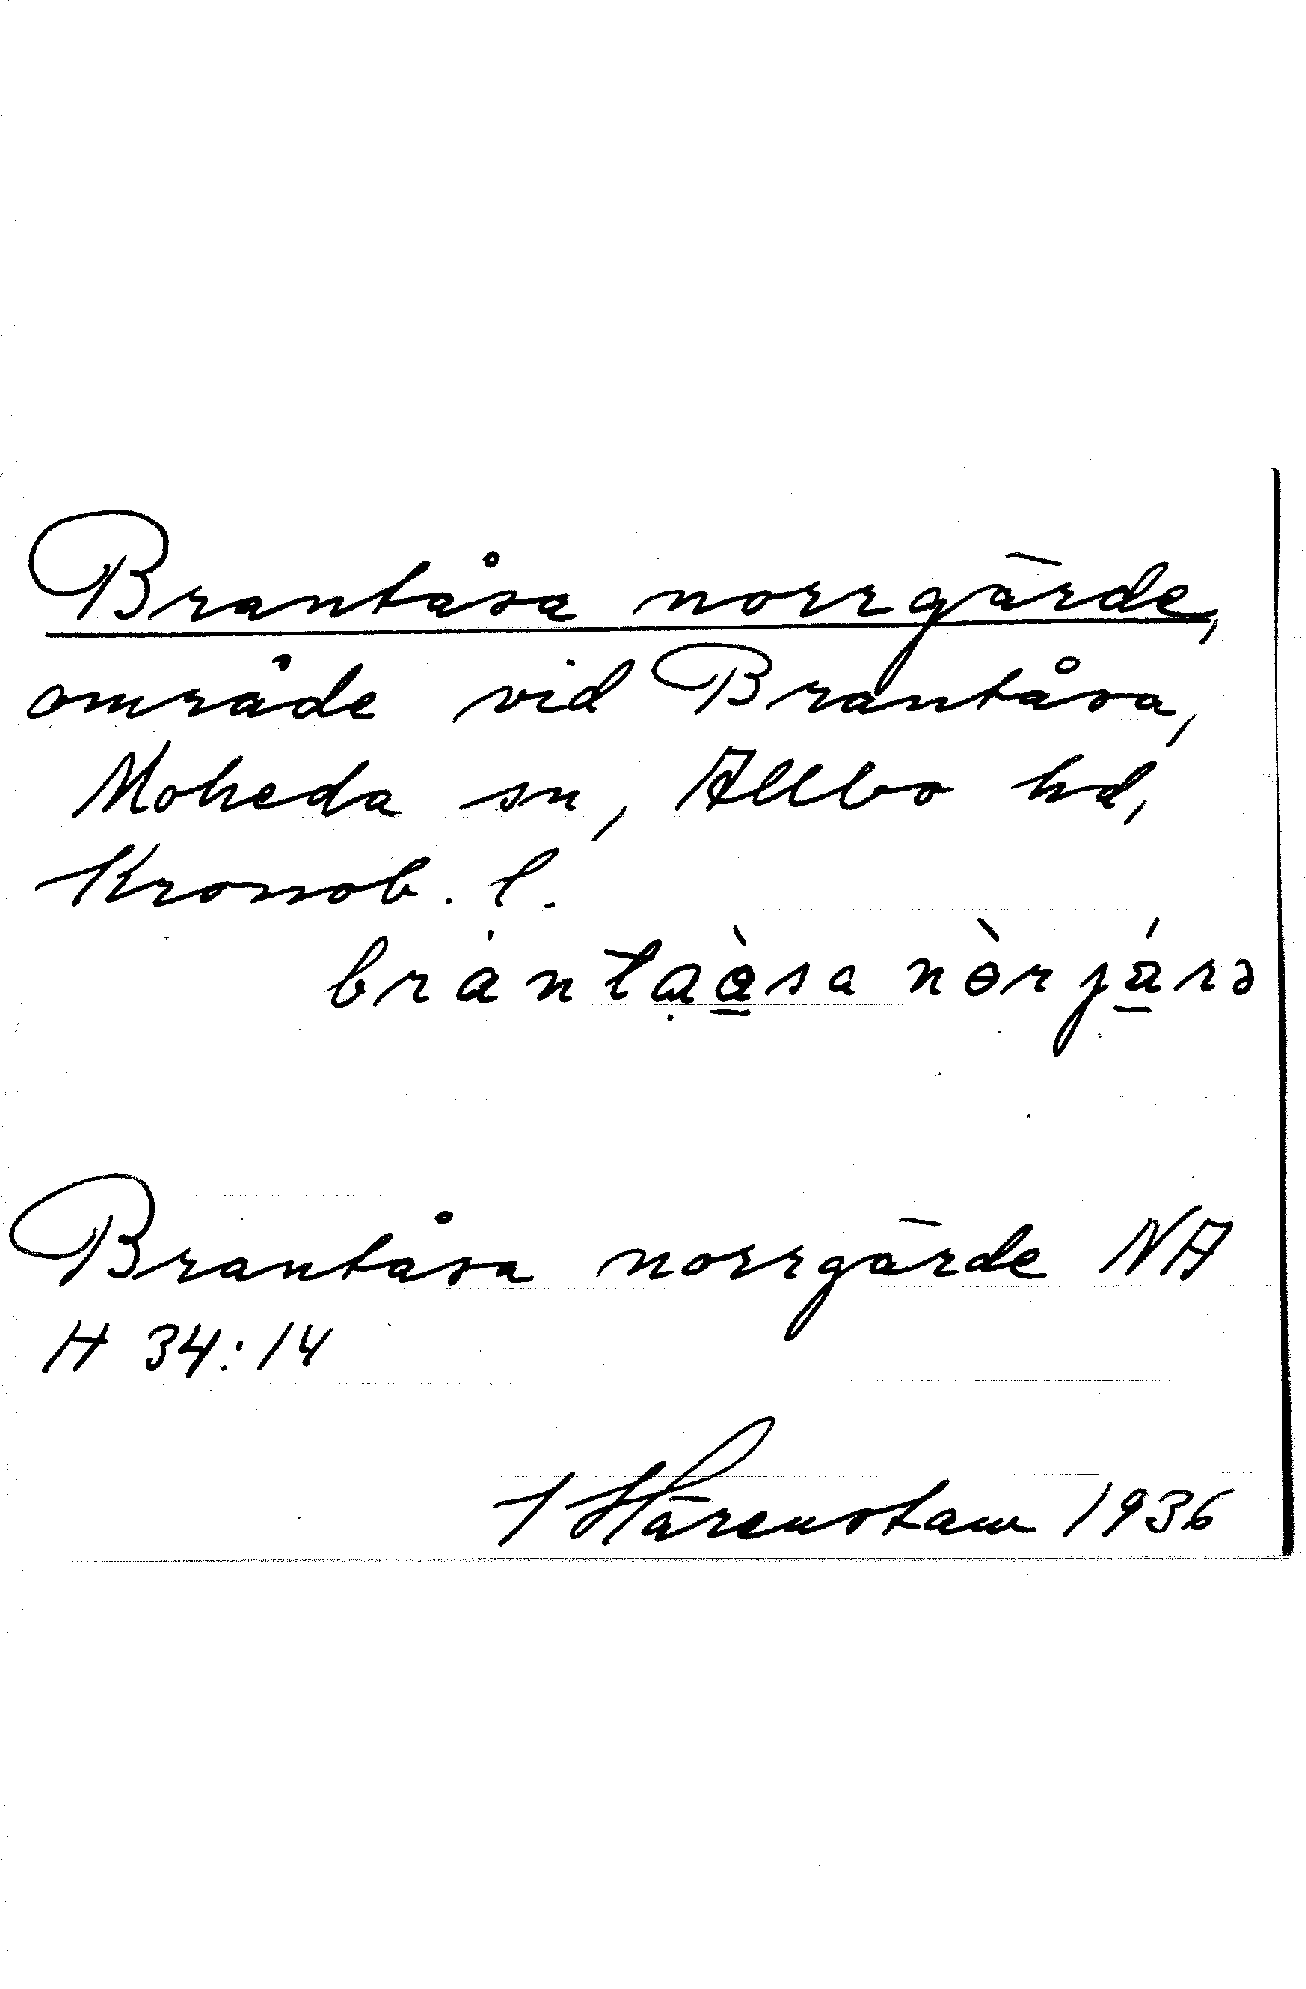 Brantåsa norrgärde,
område vid Brantåsa,
Moheda sn, Allbo hd,
Kronob. l.
Brantåsa norrgärde NA
H 34:14
Härenstam 1936